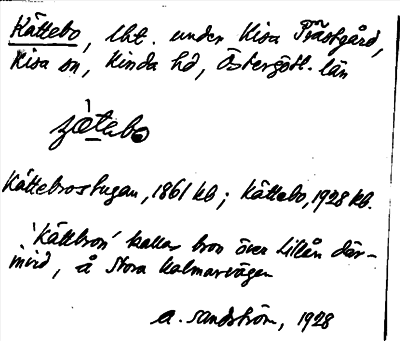 Kättebo, lht. under Kisa Prästgård,
Kisa sn, Kinda hd, Östergötl. län
Kättebrostugan, 1861 kb; Kättebo, 1928 kb.
'Kättebron' kallas bron över Lillån där-
invid, å Stora Kalmarvägen
A. Sandström, 1928